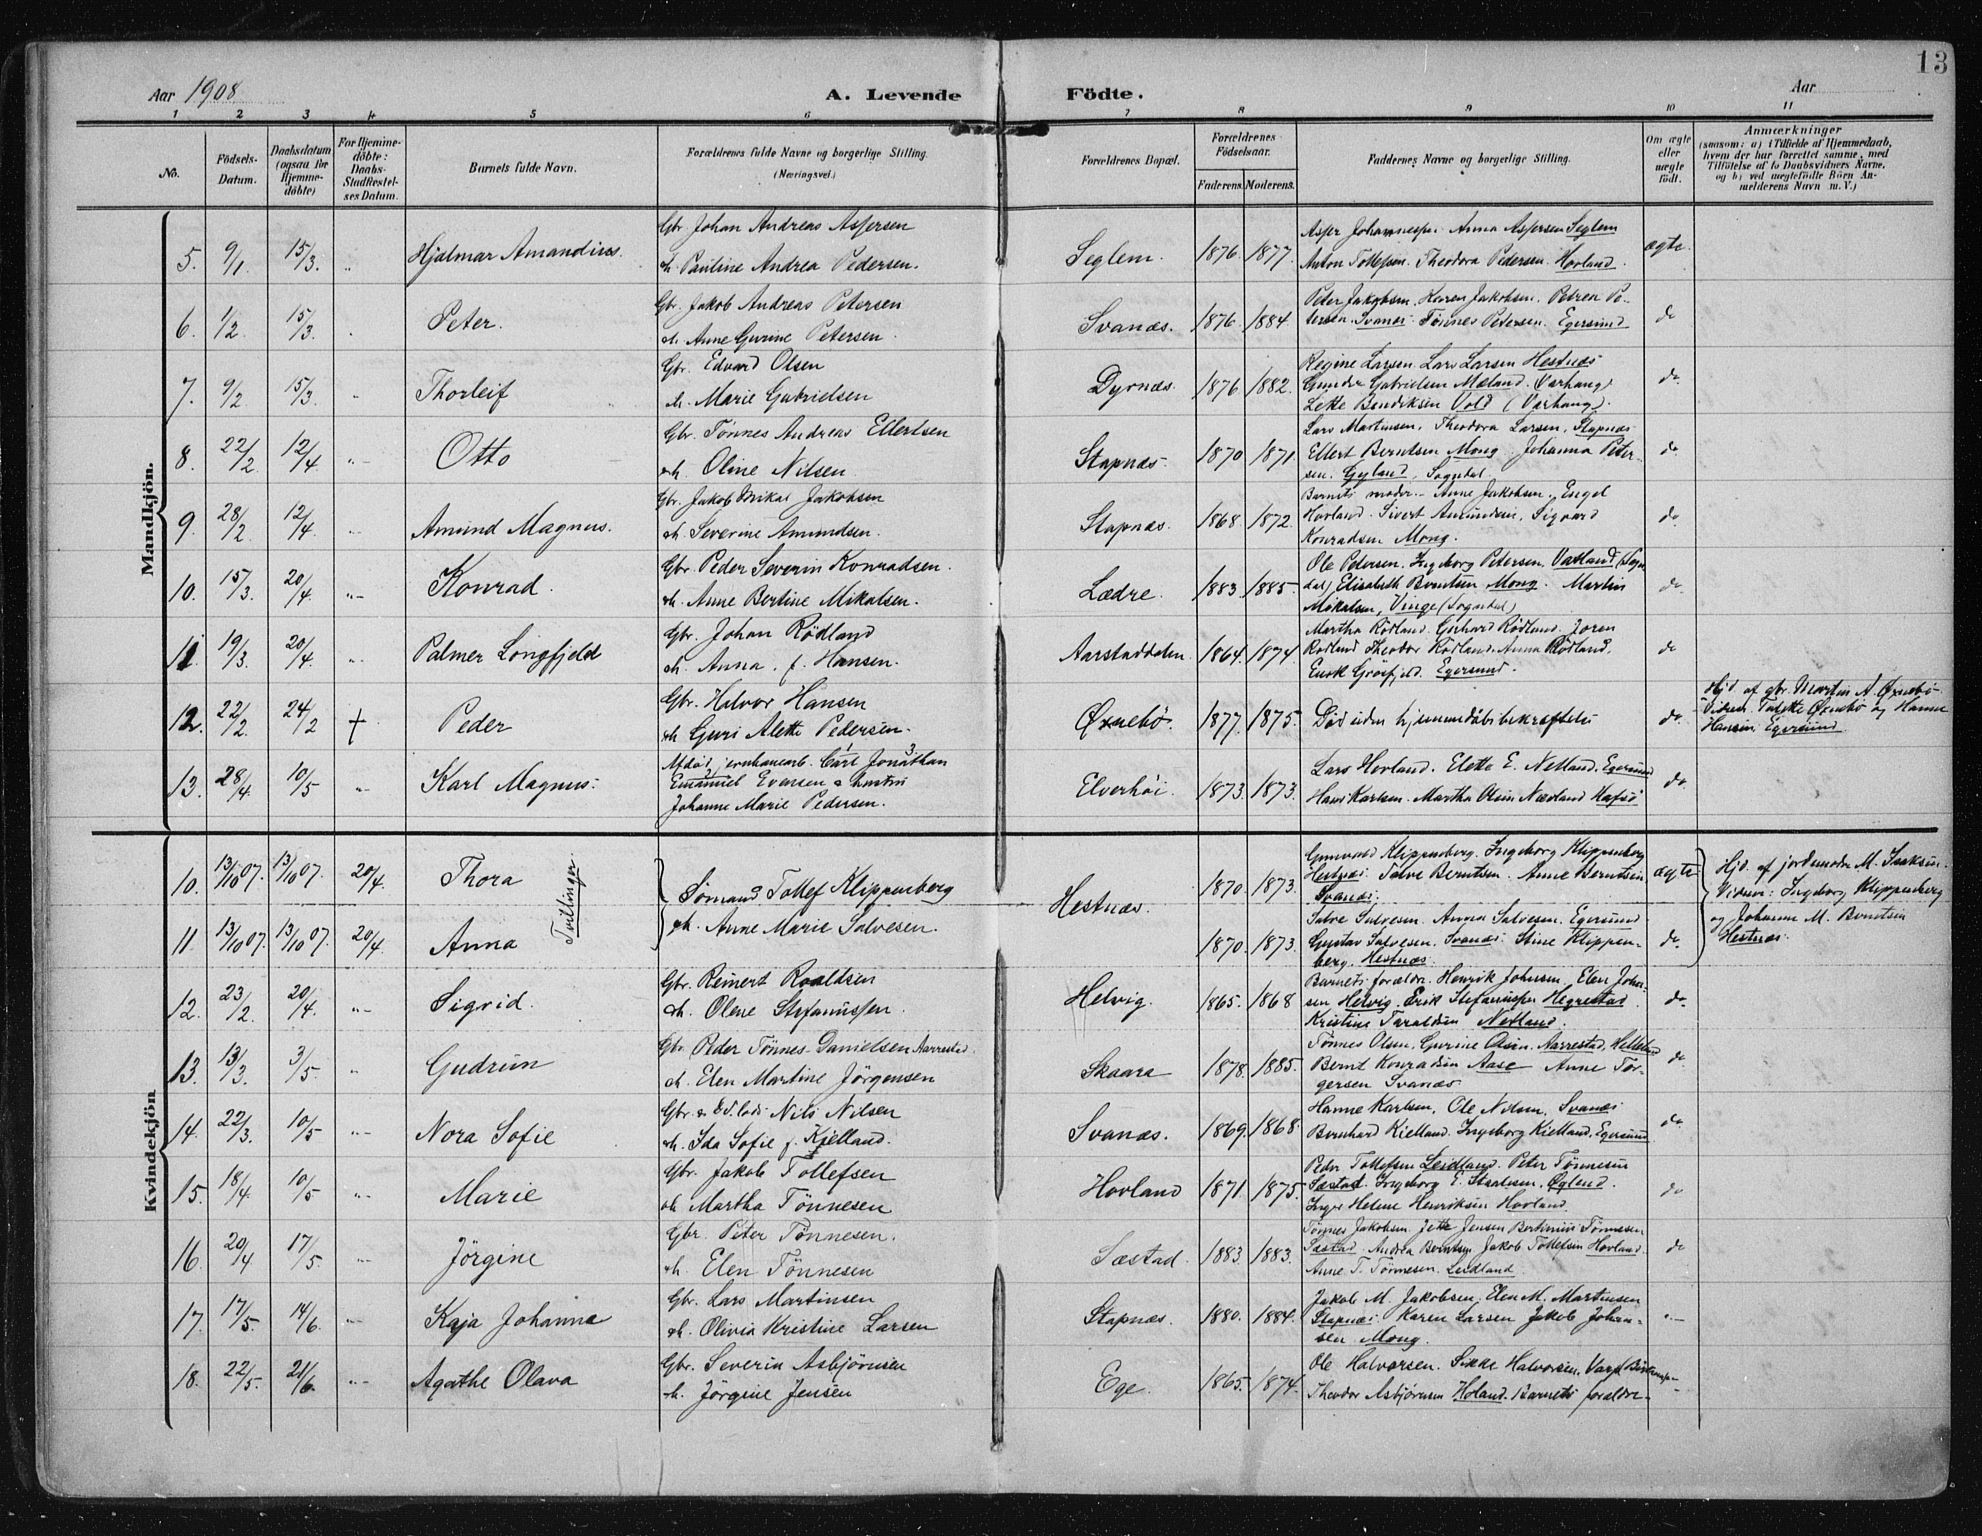 13
Aar 1908
A. Levende Födte.
Aar
1 2 3 4 5 6 7 8 9 10 11
No.
Födsels-Datum.
Daabsdatum (ogsaa for Hjemmedöbte)
For Hjemmedöbte: Daabs-Stadfæstelses Datum.
Barnets fulde Navn.
Forældrenes fulde Navne og borgerlige Stilling. (Næringsvei.)
Forældrenes Bopæl.
Forældrenes Födselsaar.
Faderens. Moderens.
Faddernes Navne og borgerlige Stilling.
Om ægte eller uægte födt.
Anmærkninger
(saasom: a) i Tilfælde af Hjemmedaab, hvem der har forrettet samme, med Tilföielse af to Daabsvidners Navne, og b) ved uægtefödte Börn Anmelderens Navn m. V.)
Mandkjön.
5. 9/1. 15/3. " Hjalmar Amandius.
Gbr. Johan Andreas Aspersen
& h. Pauline Andrea Pedersen.
Seglem. 1876. 1877.
Asper Johannesen. Anna Aspersen Seglem
Anton Tollefsen. Theodora Pedersen. Hovland.
ægte.
6. 1/2. 15/3. Peter.
Gbr. Jakob Andreas Petersen
& h. Anne Gurine Petersen.
Svanæs. 1876. 1884.
Peter Jakobsen. Karen Jakobsen. Petrea Pe-
tersen. Svanæs. Tønnes Petersen. Egersund
do
7. 9/2. 15/3. Thorleif
Gbr. Edvard Olsen
& h. Marie Gabrielsen
Dyrnæs. 1876 1882.
Regine Larsen. Lars Larsen Hestnæs
Gabrielsen Mæland. (Varhaug)
Bendiksen Vold (Varhaug).
do.
8. 22/2. 12/4 "- Otto
Gbr. Tønnes Andreas Ellertsen
& h. Oline Nilsen
Stapnæs. 1870 1871
Lars Martinsen, Theodora Larsen, Stapnæs
Ellert Berntsen Mong. Johanna Peter-
sen. Gyland, Sogndal.
do.
9 28/2. 12/4 "- Amund Magnus.
Gbr. Jakob Mikal Jakobsen
& h. Severine Amundsen.
Stapnæs. 1868 1872.
Barnets moder. Anne Jakobsen, Engel
Hovland. Sivert Amundsen, Sigvard
Konradsen Mong.
do
10. 15/3. 20/4. "- Konrad.
Gbr. Peder Severin Konradsen.
& h. Anne Bertine Mikalsen.
Lædre. 1883. 1885.
Ole Pedersen. Ingeborg Petersen, Vatland (Sogn-
dal) Elisabeth Berntsen Mong. Martin
Mikalsen, Vinge (Sogndal)
do
11. 19/3. 20/4. Palmer Longfjeld
Gbr. Johan Rödland
& h. Anna, f. Hansen.
Aarstaddalen 1864. 1874.
Martha Rödland. Gerhard Rödland. Joren
Rödland Theodor Rödland. Anna Rödland,
Egersund.
do
12. 22/2. 24/2 + Peder
Gbr. Halvor Hansen
& h. Guri Alette Pedersen.
Øxnebö. 1877. 1875.
Död uden hjemmedaabsbekræftelse
do.
Hjd. af gbr. Martin A. Øxnebö
Vidner: Øxnebö og Hanne
Hansen, Egersund.
13. 28/4. 10/5 " Karl Magnus.
Afdöd jernbanearb. Carl Jonathan
Emanuel Evensen & hustru
Johanne Marie Pedersen.
Elverhöi. 1873. 1873.
Lars Hovland. Elette E. Netland. Egersund
Hans Karlsen. Martha Olsen Nædland Hafsö
do
Kvindekjön
10. 13/10 07. 13/10 07. 20/4. Thora
11. 13/10 07. 13/10 07. 20/4. Anna
Tvillinger
Sömand Tollef Klippenberg
& h. Anne Marie Salvesen.
Hestnæs. 1870. 1873.
1870. 1873.
Gunvald Klippenberg. Ingeborg Klippenberg
Hestnæs. Salve Berntsen. Anne Berntsen
Svanæs.
ægte
Salve Salvesen. Anna Salvesen. Egersund
Gustav Salvesen. Svanæs. Stine Klippen-
berg. Hestnæs.
do.
Hjd. af jordmoder M. Isaksen.
Vidner: Ingeborg Klippenberg
og Johanna M. Berntsen
Hestnæs.
12. 23/2. 20/4. "- Sigrid.
Gbr. Reinert Roaldsen
& h. Olene Stefanussen.
Helvig. 1865. 1868
Barnets forældre. Henrik Johnsen, Elen John-
sen Helvig. Erik Stefanussen Hegrestad.
Kristine Taraldsen Netland.
do.
13. 13/3. 3/5. " Gudrun
Gbr. Peder Tönnes Danielsen Aarrestad.
& h. Elen Martine Jörgensen
Skaara 1878. 1885.
Tönnes Olsen, Gurine Olsen. Aarrestad, Helleland
Bernt Konradsen Aase Anne Tor-
gersen Svanæs.
do
14. 22/3. 10/5 "- Nora Sofie
Gbr. & Nils Nilsen
& h. Ida Sofie f. Kjelland.
Svanæs. 1869. 1868
Hanne Karlsen. Ole Nilsen, Svanæs
Bernhard Kielland. Ingeborg Kielland, Egersund
do.
15. 18/4. 10/5 "- Marie
Gbr. Jakob Tollefsen
& h. Martha Tönnesen
Hovland 1871. 1875.
Peder Tollefsen Leidland. Peter Tönnesen
Sæstad. Ingeborg E. Øgland.
Inger Helene Henriksen Hovland.
do
16. 20/4 17/5 "- Jörgine
Gbr. Peter Tönnesen.
& h. Elen Tönnesen
Sæstad. 1883. 1883.
Tönnes Jakobsen. Jette Jensen Bertinius Tönnesen
Sæstad. Andrea Berntsen Jakob Tollefsen Hovland
Anne T. Tönnesen. Leidland
do
17. 17/5. 14/6. "- Kaja Johanna
Gbr. Lars Martinsen
& h. Olivia Kristine Larsen
Stapnæs. 1880. 1884.
Jakob M. Jakobsen. Elen M. Martinsen
Stapnæs. Karen Larsen Jakob Johan-
sen Mong.
"-
18. 22/5. 21/6. "- Agathe Olava
Gbr. Severin Asbjörnsen
& h. Jörgine Jensen
Ege. 1865. 1874.
Ole Halvorsen. Halvorsen.
Theodor Asbjörnsen Hovland. Barnets forældre